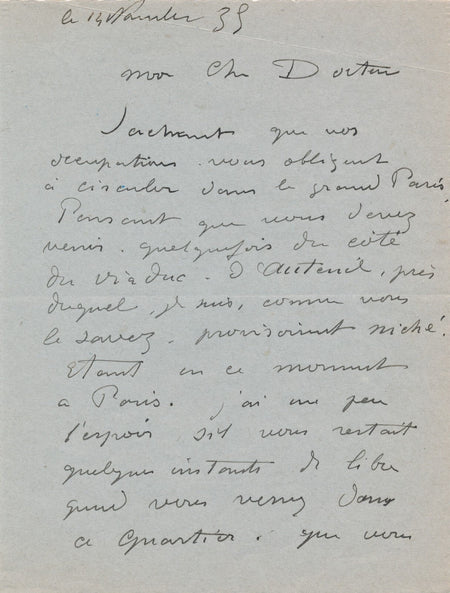 le 14 Novembre 35
mon Cher Docteur
Sachant que vos
occupations vous obligent
à circuler dans le grand Paris,
Pensant que vous devez
venir. quelquefois du côté
du viaduc. D'Auteuil, près
duquel, je suis, comme vous
le savez, provisoirement niché.
Etant en ce moment
a Paris. j'ai un peu
l'espoir s'il vous restait
quelques instants de libre
quand vous venez dans
ce Quartier. que vous